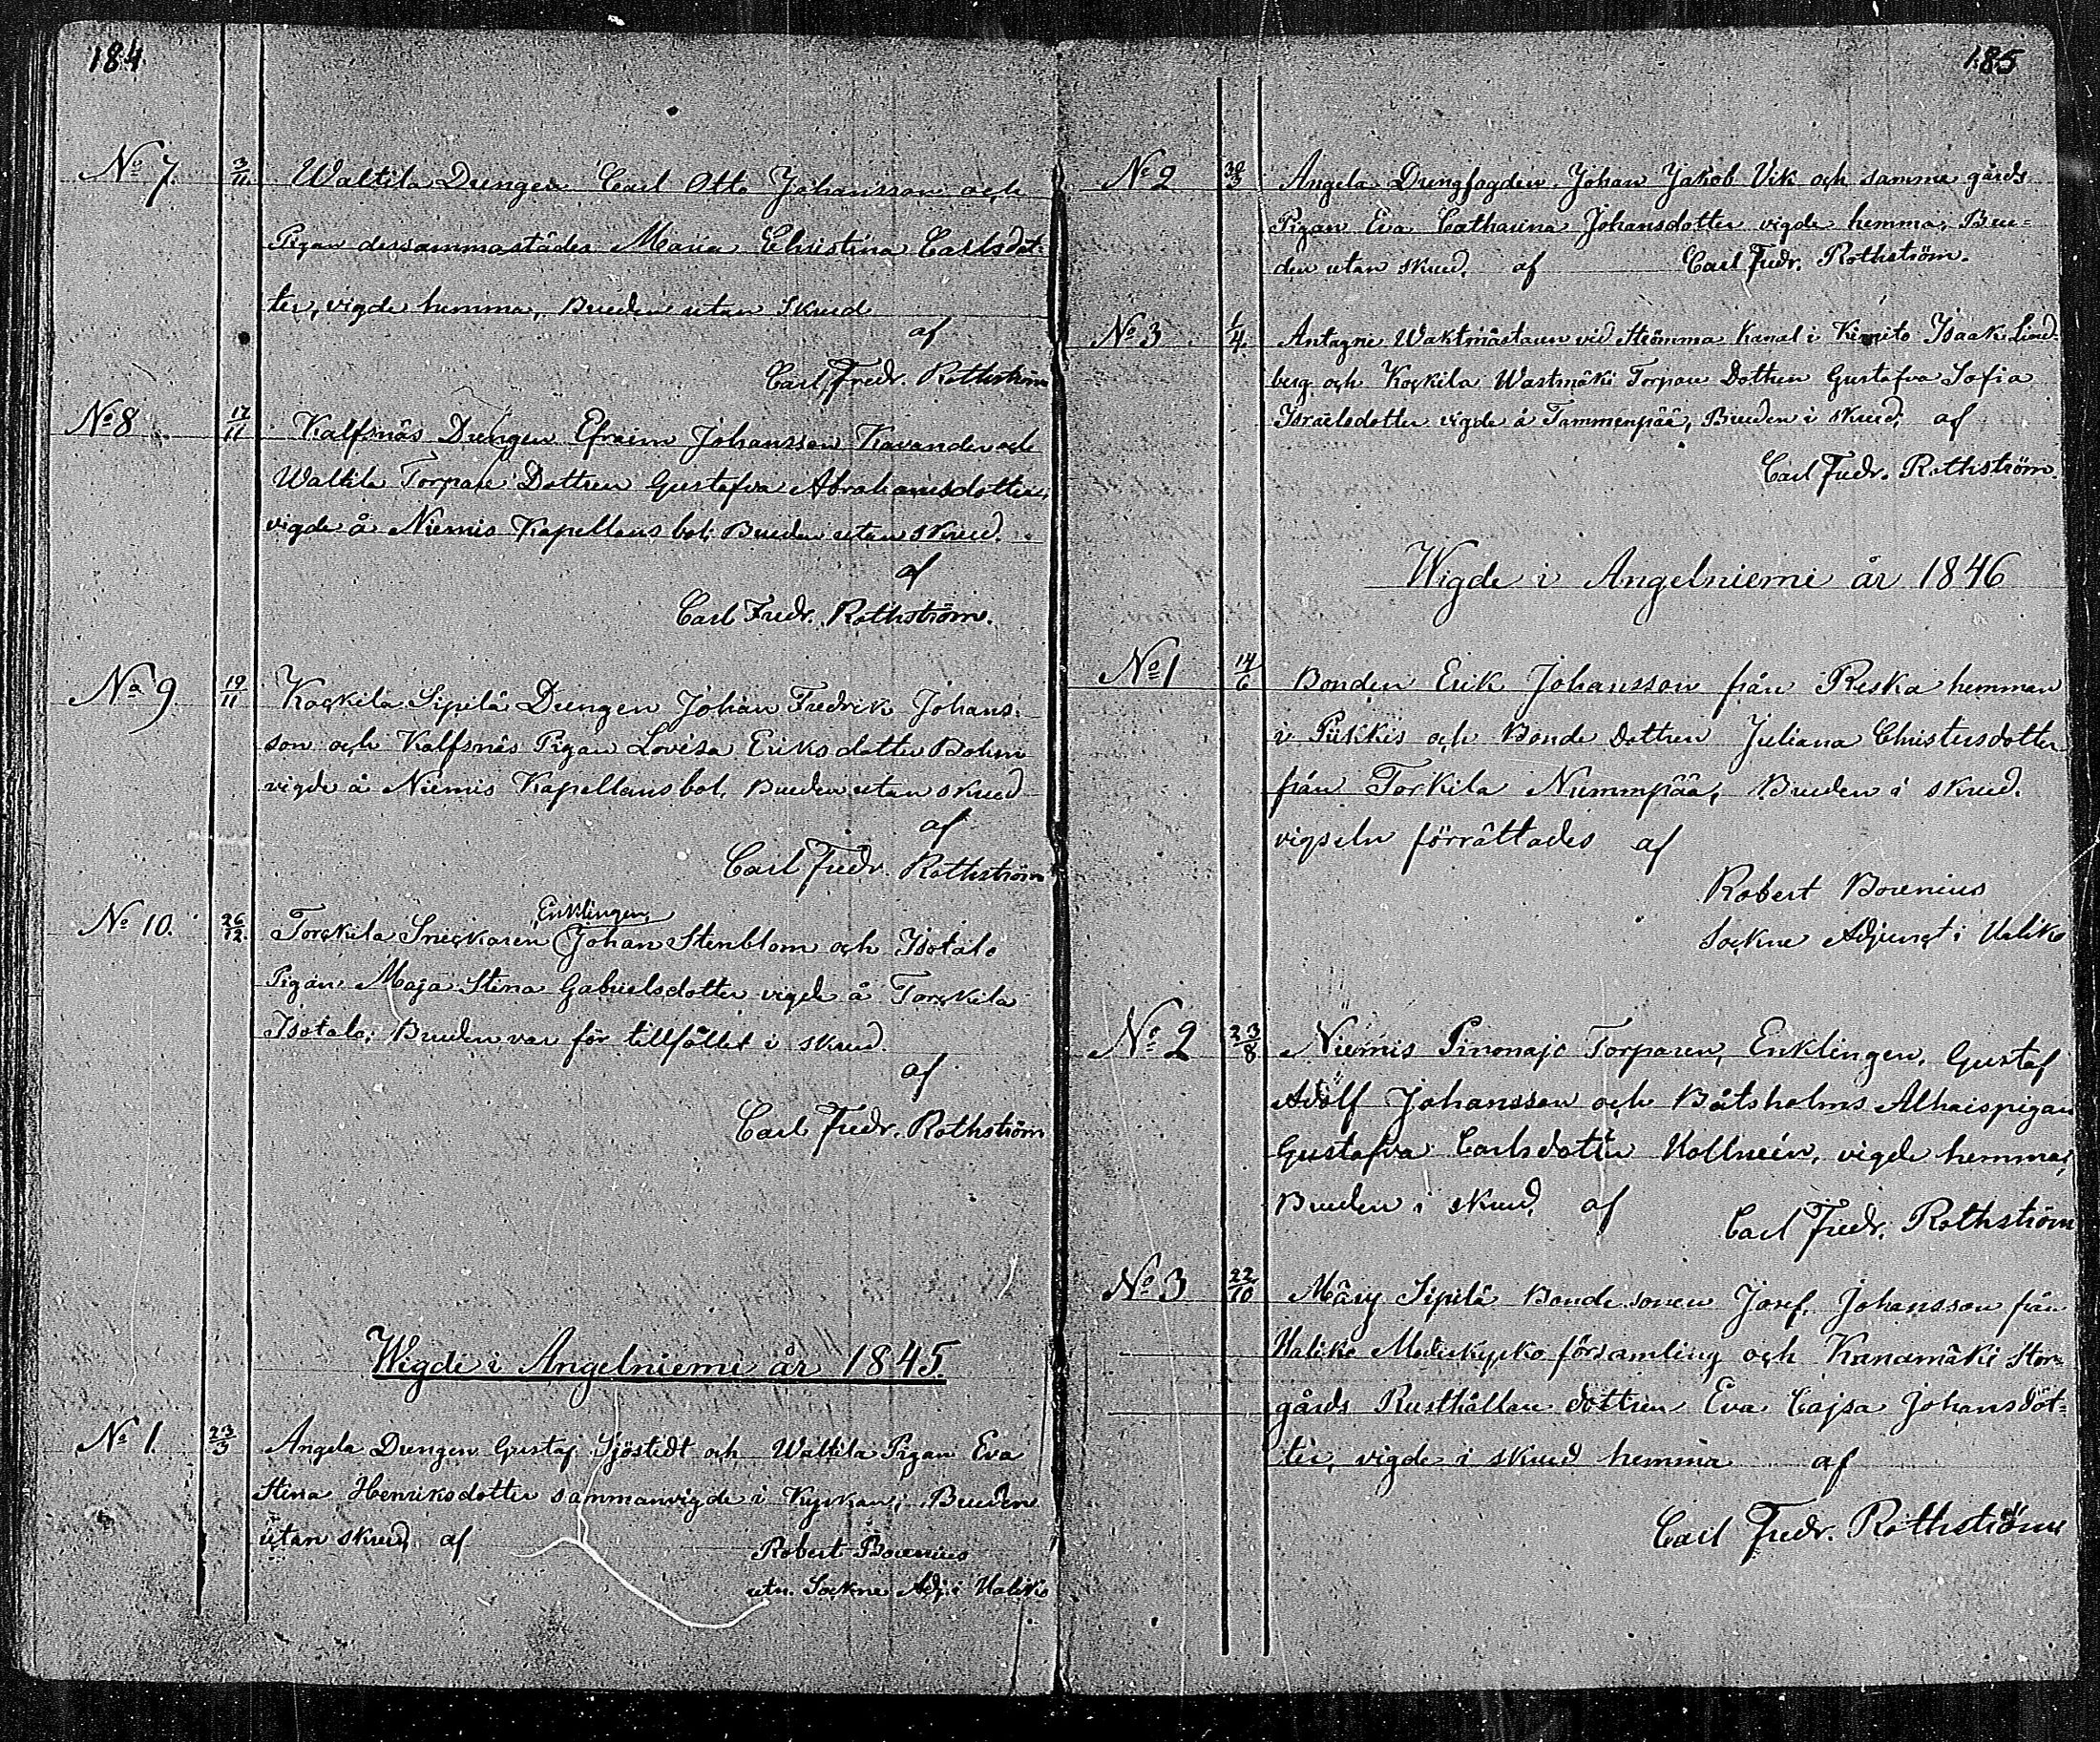 184.
No 7. 3/11. Waltila Drengen Carl Otto Johansson och
Pigan dersammastädes Maria Christina Carlsdot-
ter, vigde hemma, Bruden utan skrud
af
Carl Fredr. Rothström
No 8 17/11 Kalfsnäs Drengen Efraim Johansson Kavander och
Waltila Torpare Dottren Gustafva Abrahamsdotter,
vigde å Niemis Kapellans bol. Bruden utan skrud.
af
Carl Fredr. Rothström.
No 9. 19/11 Koskila Sipilä Drengen Johan Fredrik Johans-
son och Kalfsnäs Pigan Lovisa Eriksdotter Bohm
vigde å Niemis Kapellans bol. Bruden utan skrud
af
Carl Fredr. Rothström
Enklingen,
No 10. 26/12. Torskila Snickaren Johan Stenblom och Isotalo
Pigan Maja Stina Gabrielsdotter vigde å Torskila
Isotalo; Bruden var för tillfället i skrud.
af
Carl Fredr. Rothström
Wigde i Angelniemi år 1845.
No 1. 23/3 Angela Drengen Gustaf Sjöstedt och Waltila Pigan Eva
Stina Henriksdotter sammanvigde i Kyrkan; Bruden
utan skrud, af
Robert Borenius
utn. Sockne Adj. i Haliko
185
No 2 30/3 Angela Drengfogden Johan Jakob Vik och samma gårds
Pigan Eva Catharina Johansdotter vigde hemma, Bru-
den utan skrud, af Carl Fredr. Rothström.
No 3 1/4. Antagne Waktmästaren vid Strömma Kanal i Kimito Isaak Lind-
berg och Koskila Wastmäki Torpare Dottren Gustafva Sofia
Israelsdotter vigde å Tammenpää, Bruden i skrud; af
Carl Fredr. Rothström.
Wigde i Angelniemi år 1846
No 1 14/6 Bonden Erik Johansson från Riska hemman
i Piikkis och Bonde dottren Juliana Christersdotter
från Torkila Nummpää, Bruden i skrud.
vigseln förrättades af
Robert Borenius
Sockne Adjunct i Haliko
No 2 23/8 Niemis Pinonajo Torparen, Enklingen, Gustaf
Adolf Johansson och Båtsholms Alhaispigan
Gustafva Carlsdotter Hollmén, vigde hemma,
Bruden i skrud, af Carl Fredr. Rothström
No 3 22/10 Märy Sipilä Bonde sonen Josef Johansson från
Haliko Moderkyrko församling och Kanamäki Stor-
gårds Rusthållare dottren Eva Cajsa Johansdot-
ter, vigde i skrud hemma af
Carl Fredr. Rothström